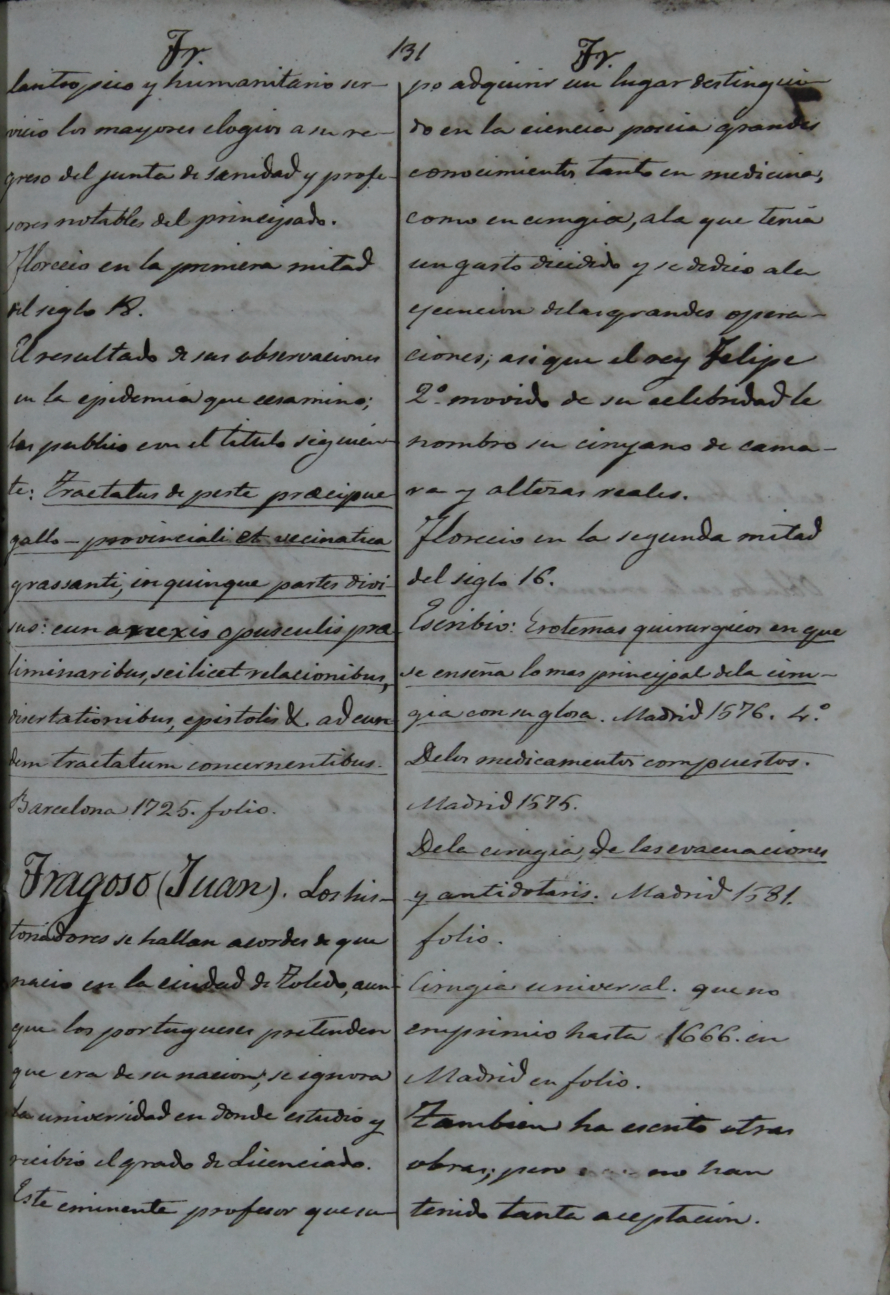 Fr.
131
Fr.
lantropico y humanitario ser-
vicio los mayores elogios a su re-
greso del junta de sanidad y profe-
sores notables del principado.
Florecio en la primera mitad
del siglo 18.
El resultado de sus observaciones
en la epidemia que ecsamino;
las publico con el titulo siguien-
te: Tractatus de peste præcipue
gallo-provinciali et vecinatica
grassanti, in quinque partes divi-
sus: cun anexis opusculis præ-
liminaribus, scilicet relacionibus,
disertationibus, epistolis &. ad eun-
dem tractatum concernentibus.
Barcelona 1725. folio.
Fragoso (Juan). Los his-
toriadores se hallan acordes de que
nacio en la ciudad de Toledo, aun-
que los portugueses pretenden
que era de su nacion; se ignora
la universidad en donde estudio y
recibio el grado de Licenciado.
Este eminente profesor que su-
po adquirir un lugar destingui-
do en la ciencia poseia grandes
conocimientos tanto en medicina,
como en cirugia, a la que tenia
un gusto dicidido y se dedico a la
ejecucion de las grandes opera-
ciones; asi que el rey Felipe
2º. movido de su celebridad le
nombro su cirujano de cama-
ra y altezas reales.
Florecio en la segunda mitad
del siglo 16.
Escribio: Erotemas quirurgicos en que
se enseña lo mas principal de la ciru-
gia con su glosa. Madrid 1576. 4.º
De los medicamentos compuestos.
Madrid 1575.
De la cirugia, de las evacuaciones
y antidotariis. Madrid 1581.
folio.
Cirugia universal. que no
emprimio hasta 1666. en
Madrid en folio.
Tambien ha escrito otras
obras; pero no han
tenido tanta aceptacion.